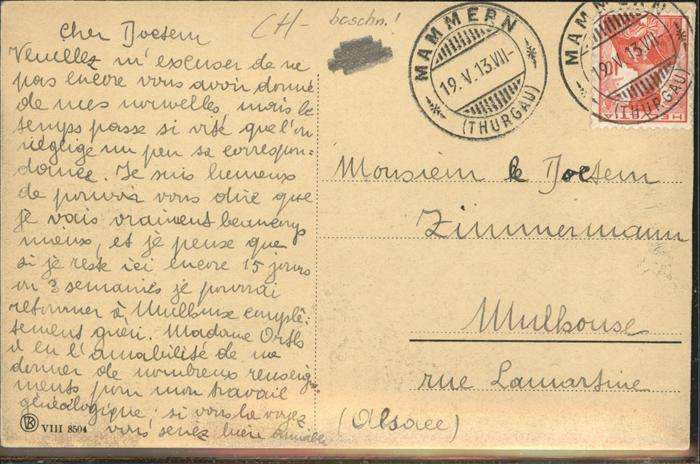 Cher Docteur
Veuillez m'excuser de ne
pas encore vous avoir donné
de mes nouvelles, mais le
temps passe si vite que l'on
néglige un peu sa correspon-
dance. Je suis heureux
de pouvoir vous dire que
je vais vraiment beaucoup
mieux, et je pense que
si je reste ici encore 15 jours
ou 3 semaines je pourrai
retourner à Mulhouse complè-
tement guéri. Madame
a eu l'amabilité de me
donner de nombreux renseigne-
ments pour mon travail
généalogique; si vous la voyez
vous seriez bien aimable
VIII 8504
CH-
beschn.!
MAMMERN
19.V.13.VII-
(THURGAU)
MAMMERN
19.V.13.VII-
(THURGAU)
HELVETIA
Monsieur le Docteur
Zimmermann
Mulhouse
rue Lamartine
(Alsace)